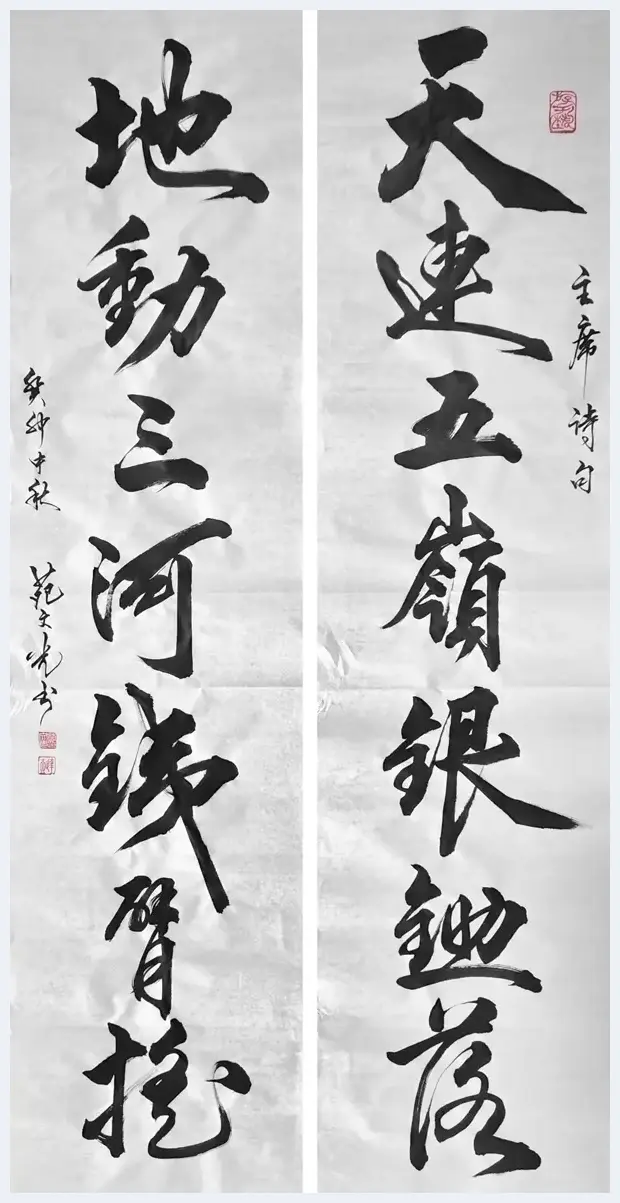 天連五嶺銀鋤落
主席诗句
地動三河鐵臂摇
癸卯中秋
范文光书